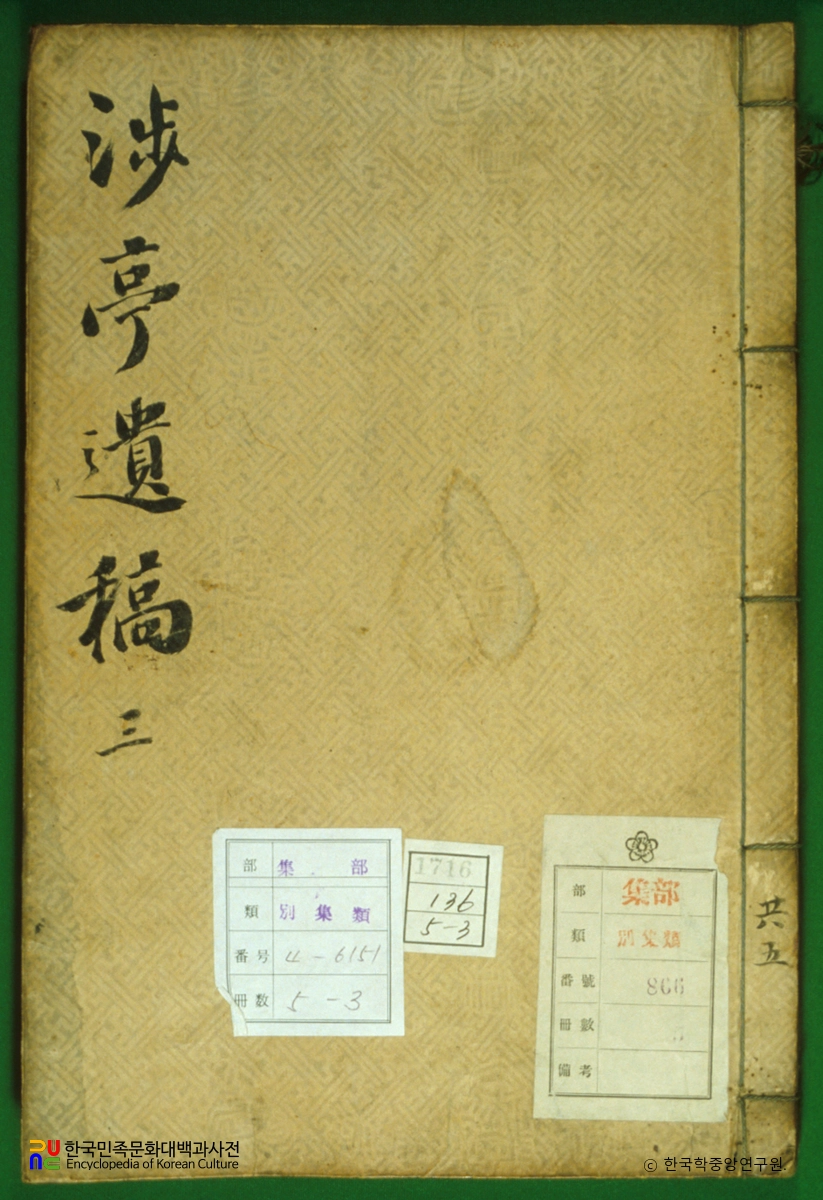 涉亭遺稿 三
共五
部 集部
類 別集類
番号 4-6151
冊数 5-3
1716
136
5-3
部 集部
類 別集類
番號 866
冊數
備考
한국민족문화대백과사전
Encyclopedia of Korean Culture
© 한국학중앙연구원.